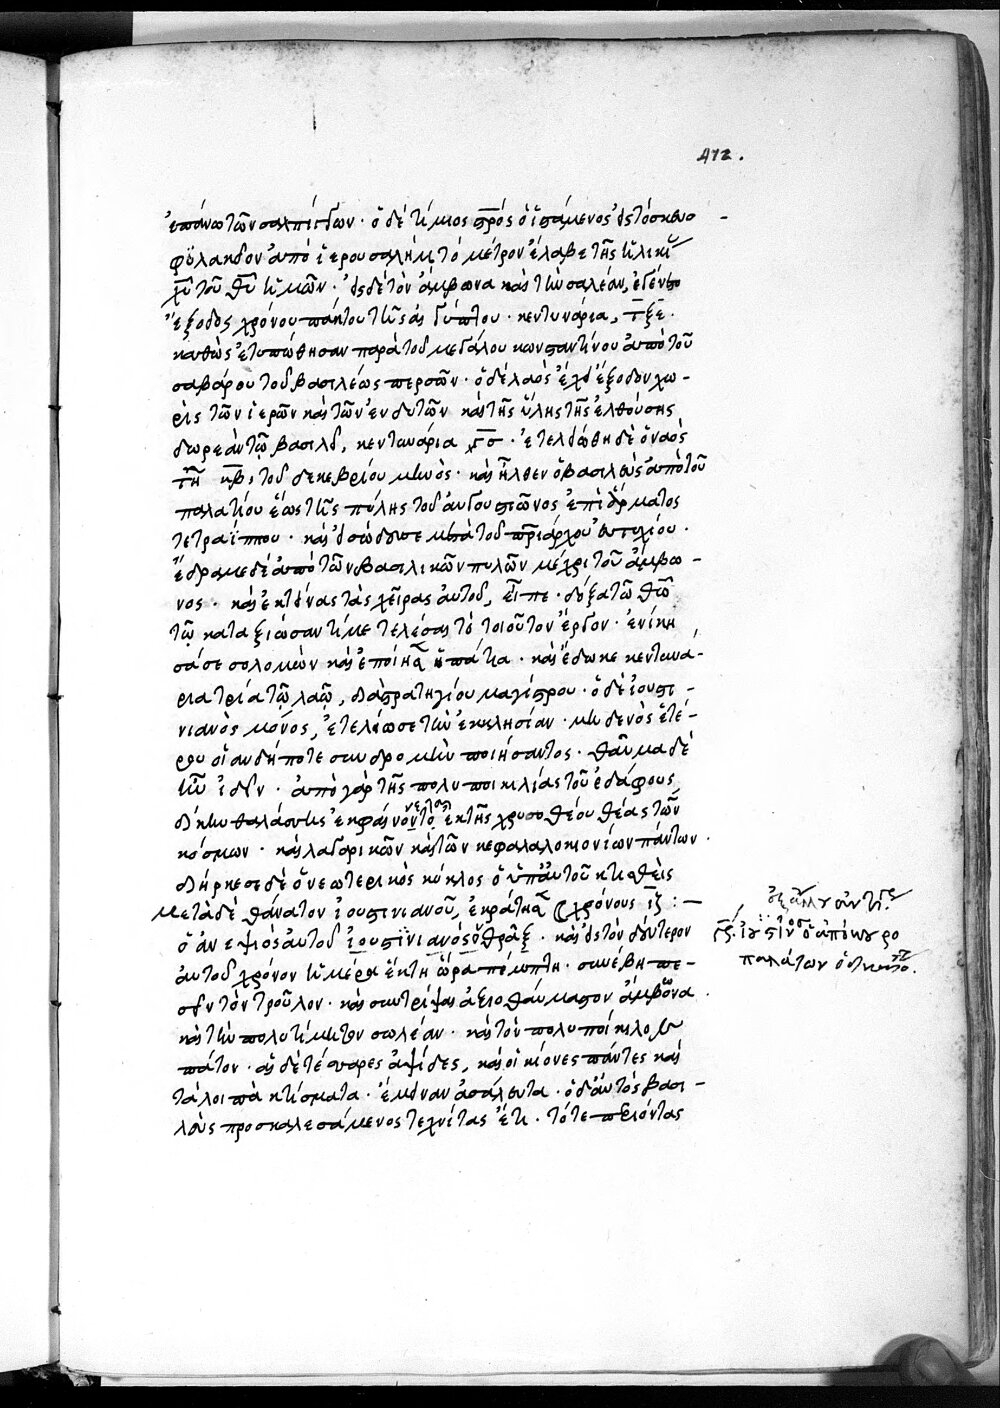 412.
ἐπάνω τῶν σαλπίγγων· ὁ δὲ τίμιος σταυρός ὁ ἱστάμενος εἰς τὸ σκευο-
φυλακεῖον ἀπὸ ἱερουσαλήμ, τὸ μέτρον ἔλαβε τῆς ἡλικίας
χυ τοῦ θυ ἡμῶν· εἰς δὲ τὸν ἄμβωνα καὶ τὴν σολέαν, ἐγένετο
ἔξοδος χρόνου πάκτου τῆς αἰγύπτου· κεντηνάρια, τξε·
καθὼς ἐτυπώθησαν παρὰ τοῦ μεγάλου κωνσταντίνου ἀπὸ τοῦ
σαβάρου τοῦ βασιλέως περσῶν· ὁ δὲ λαὸς ἔχει ἔξοδον χω-
ρὶς τῶν ἱερῶν καὶ τῶν ἐνδυτῶν καὶ τῆς ὕλης τῆς ἐλθούσης
δωρεὰν τῷ βασιλεῖ, κεντηνάρια· ἐτελειώθη δὲ ὁ ναὸς
τῇ κβ, τοῦ δεκεβρίου μηνὸς· καὶ ἦλθεν ὁ βασιλεὺς ἀπὸ τοῦ
παλατίου ἕως τῆς πύλης τοῦ αὐγουστεῶνος ἐπὶ ἅρματος
τετραΐππου· καὶ εἰσώδευσε μετὰ τοῦ πριάρχου εὐτυχίου·
ἔδραμε δὲ ἀπὸ τῶν βασιλικῶν πυλῶν μέχρι τοῦ ἄμβω-
νος· καὶ ἐκτείνας τὰς χεῖρας αὐτοῦ, εἶπε· δόξα τῷ θῶ
τῷ καταξιώσαντί με τελέσαι τὸ τοιοῦτον ἔργον· ἐνίκη
σά σε σολομὼν καὶ ἐποίησεν ὑπάτια· καὶ ἔδωκε κεντηνά-
ρια τρία τῷ λαῷ, διὰ στρατηγίου μαγίστρου· ὁ δὲ ἰουστι-
νιανὸς μόνος, ἐτελείωσε τὴν ἐκκλησίαν· μηδενὸς ἑτέ-
ρου οἱανδήποτε συνδρομὴν ποιήσαντος· θαῦμα δὲ
ἦν ἰδεῖν· ἀπὸ γὰρ τῆς πολυποικιλίας τοῦ ἐδάφους
δίκην θαλάσσης ἐκφαίνοντο ἐκ τῆς χρυσοθέου θέας τῶν
κόσμων· καὶ λαγαρικῶν καὶ τῶν κεφαλαλοκιονίων πάντων·
διήρκεσε δὲ ὁ νεωτερικὸς κύκλος ὁ ὑπ' αὐτοῦ κτισθεὶς
μετὰ δὲ θάνατον ἰουστινιανοῦ, ἐκράτησε χρόνους ιζ :—
ὁ ἀνεψιὸς αὐτοῦ ἰουστινιανὸς ὁ θρᾷξ· καὶ εἰς τὸν δεύτερον
αὐτοῦ χρόνον ἡμέρα ἕκτη ὥρα πέμπτη· συνέβη πε-
σεῖν τὸν τροῦλον· καὶ συντρίψαι ἀξιοθαύμαστον ἄμβωνα·
καὶ τὴν πολυτίμητον σωλέαν· καὶ τὸν πολυποίκιλον
πάτον· αἱ δὲ τέσσαρες ἀψίδες, καὶ οἱ κίονες πάντες καὶ
τὰ λοιπὰ κτίσματα· ἔμειναν ἀσάλευτα· ὁ δ' αὐτὸς βασι-
λεὺς προσκαλεσάμενος τεχνίτας ἔτι· τότε περιόντας
ἰουστῖνος ὁ ἀπὸ κουρο
παλάτων